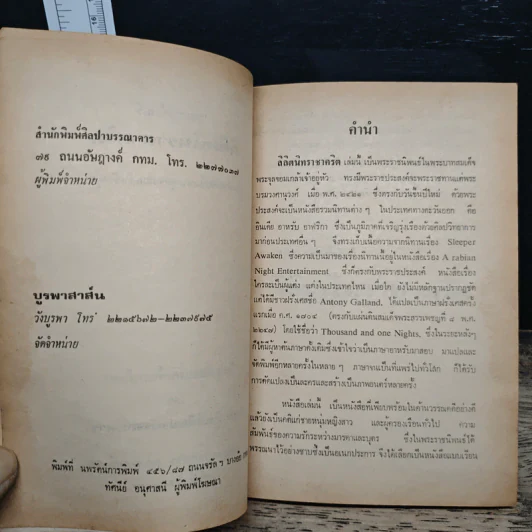 สำนักพิมพ์ศิลปาบรรณาคาร
๗๕ ถนนอัษฎางค์ กทม. โทร. ๒๒๗๗๐๓๗
ผู้พิมพ์จำหน่าย
บูรพาสาส์น
วังบูรพา โทร ๒๒๑๕๖๗๒-๒๒๓๗๙๘๕
จัดจำหน่าย
พิมพ์ที่ นพรัตน์การพิมพ์ ๔๕๖/๔๗ ถนนจรัล ฯ
ทัศนีย์ อนุศาสนี ผู้พิมพ์โฆษณา
คำนำ
ลิลิตนิทราชาคริต เล่มนี้ เป็นพระราชนิพนธ์ในพระบาทสมเด็จ
พระจุลจอมเกล้าเจ้าอยู่หัว ทรงมีพระประสงค์จะพระราชทานแด่พระ
บรมวงศานุวงศ์ เมื่อ พ.ศ. ๒๔๒๑ ซึ่งตรงกับวันขึ้นปีใหม่ ด้วยพระ
ประสงค์จะเป็นหนังสือรวมนิทานต่าง ๆ ในประเทศทางตะวันออก คือ
อินเดีย อาหรับ อาฟริกา ซึ่งเป็นภูมิภาคที่เจริญรุ่งเรืองด้วยศิลปวิทยาการ
มาก่อนประเทศอื่น ๆ จึงตรงกับเนื้อความจากนิทานเรื่อง Sleeper
Awaken ซึ่งความเป็นมาของเรื่องนิทานนี้อยู่ในหนังสือเรื่อง A rabian
Night Entertainment ซึ่งก็ตรงกับพระราชประสงค์ หนังสือเรื่อง
ใครจะเป็นผู้แต่ง แต่งในประเทศไหน เมื่อใด ยังไม่มีหลักฐานปรากฏชัด
แต่ได้มีชาวฝรั่งเศสชื่อ Antony Galland, ได้แปลเป็นภาษาฝรั่งเศสครั้ง
แรกเมื่อ ค.ศ. ๑๗๐๔ (ตรงกับแผ่นดินสมเด็จพระสรรเพชญที่ ๘ พ.ศ.
๒๒๔๗) โดยใช้ชื่อว่า Thousand and one Nights, ซึ่งในระยะหลังๆ
ก็ได้มีผู้หาต้นภาษาดั้งเดิมซึ่งเข้าใจว่าเป็นภาษาอาหรับมาสอบ มาแปลและ
จัดพิมพ์อีกหลายครั้งในหลาย ๆ ภาษาจนเป็นที่แพร่ไปทั่วโลก ก็ได้รับ
การดัดแปลงเป็นละครและสร้างเป็นภาพยนตร์หลายครั้ง
หนังสือเล่มนี้ เป็นหนังสือที่เพียบพร้อมในด้านวรรณคดีอย่างดี
แล้วยังเป็นคติแก่ชายหนุ่มหญิงสาว และผู้ครองเรือนทั่วไป ความ
สัมพันธ์ของความรักระหว่างมารดาและบุตร ซึ่งในพระราชนิพนธ์ได้
พรรณาไว้อย่างซาบซึ้งเป็นอเนกประการ จึงได้เลือกเป็นหนังสือแบบเรียน